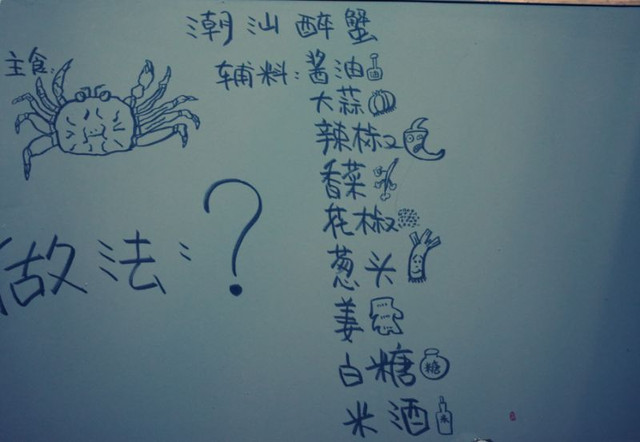 潮汕醉蟹
主食:
辅料:酱油
大蒜
辣椒
香菜
花椒
葱头
姜
白糖
糖
米酒
做法:?